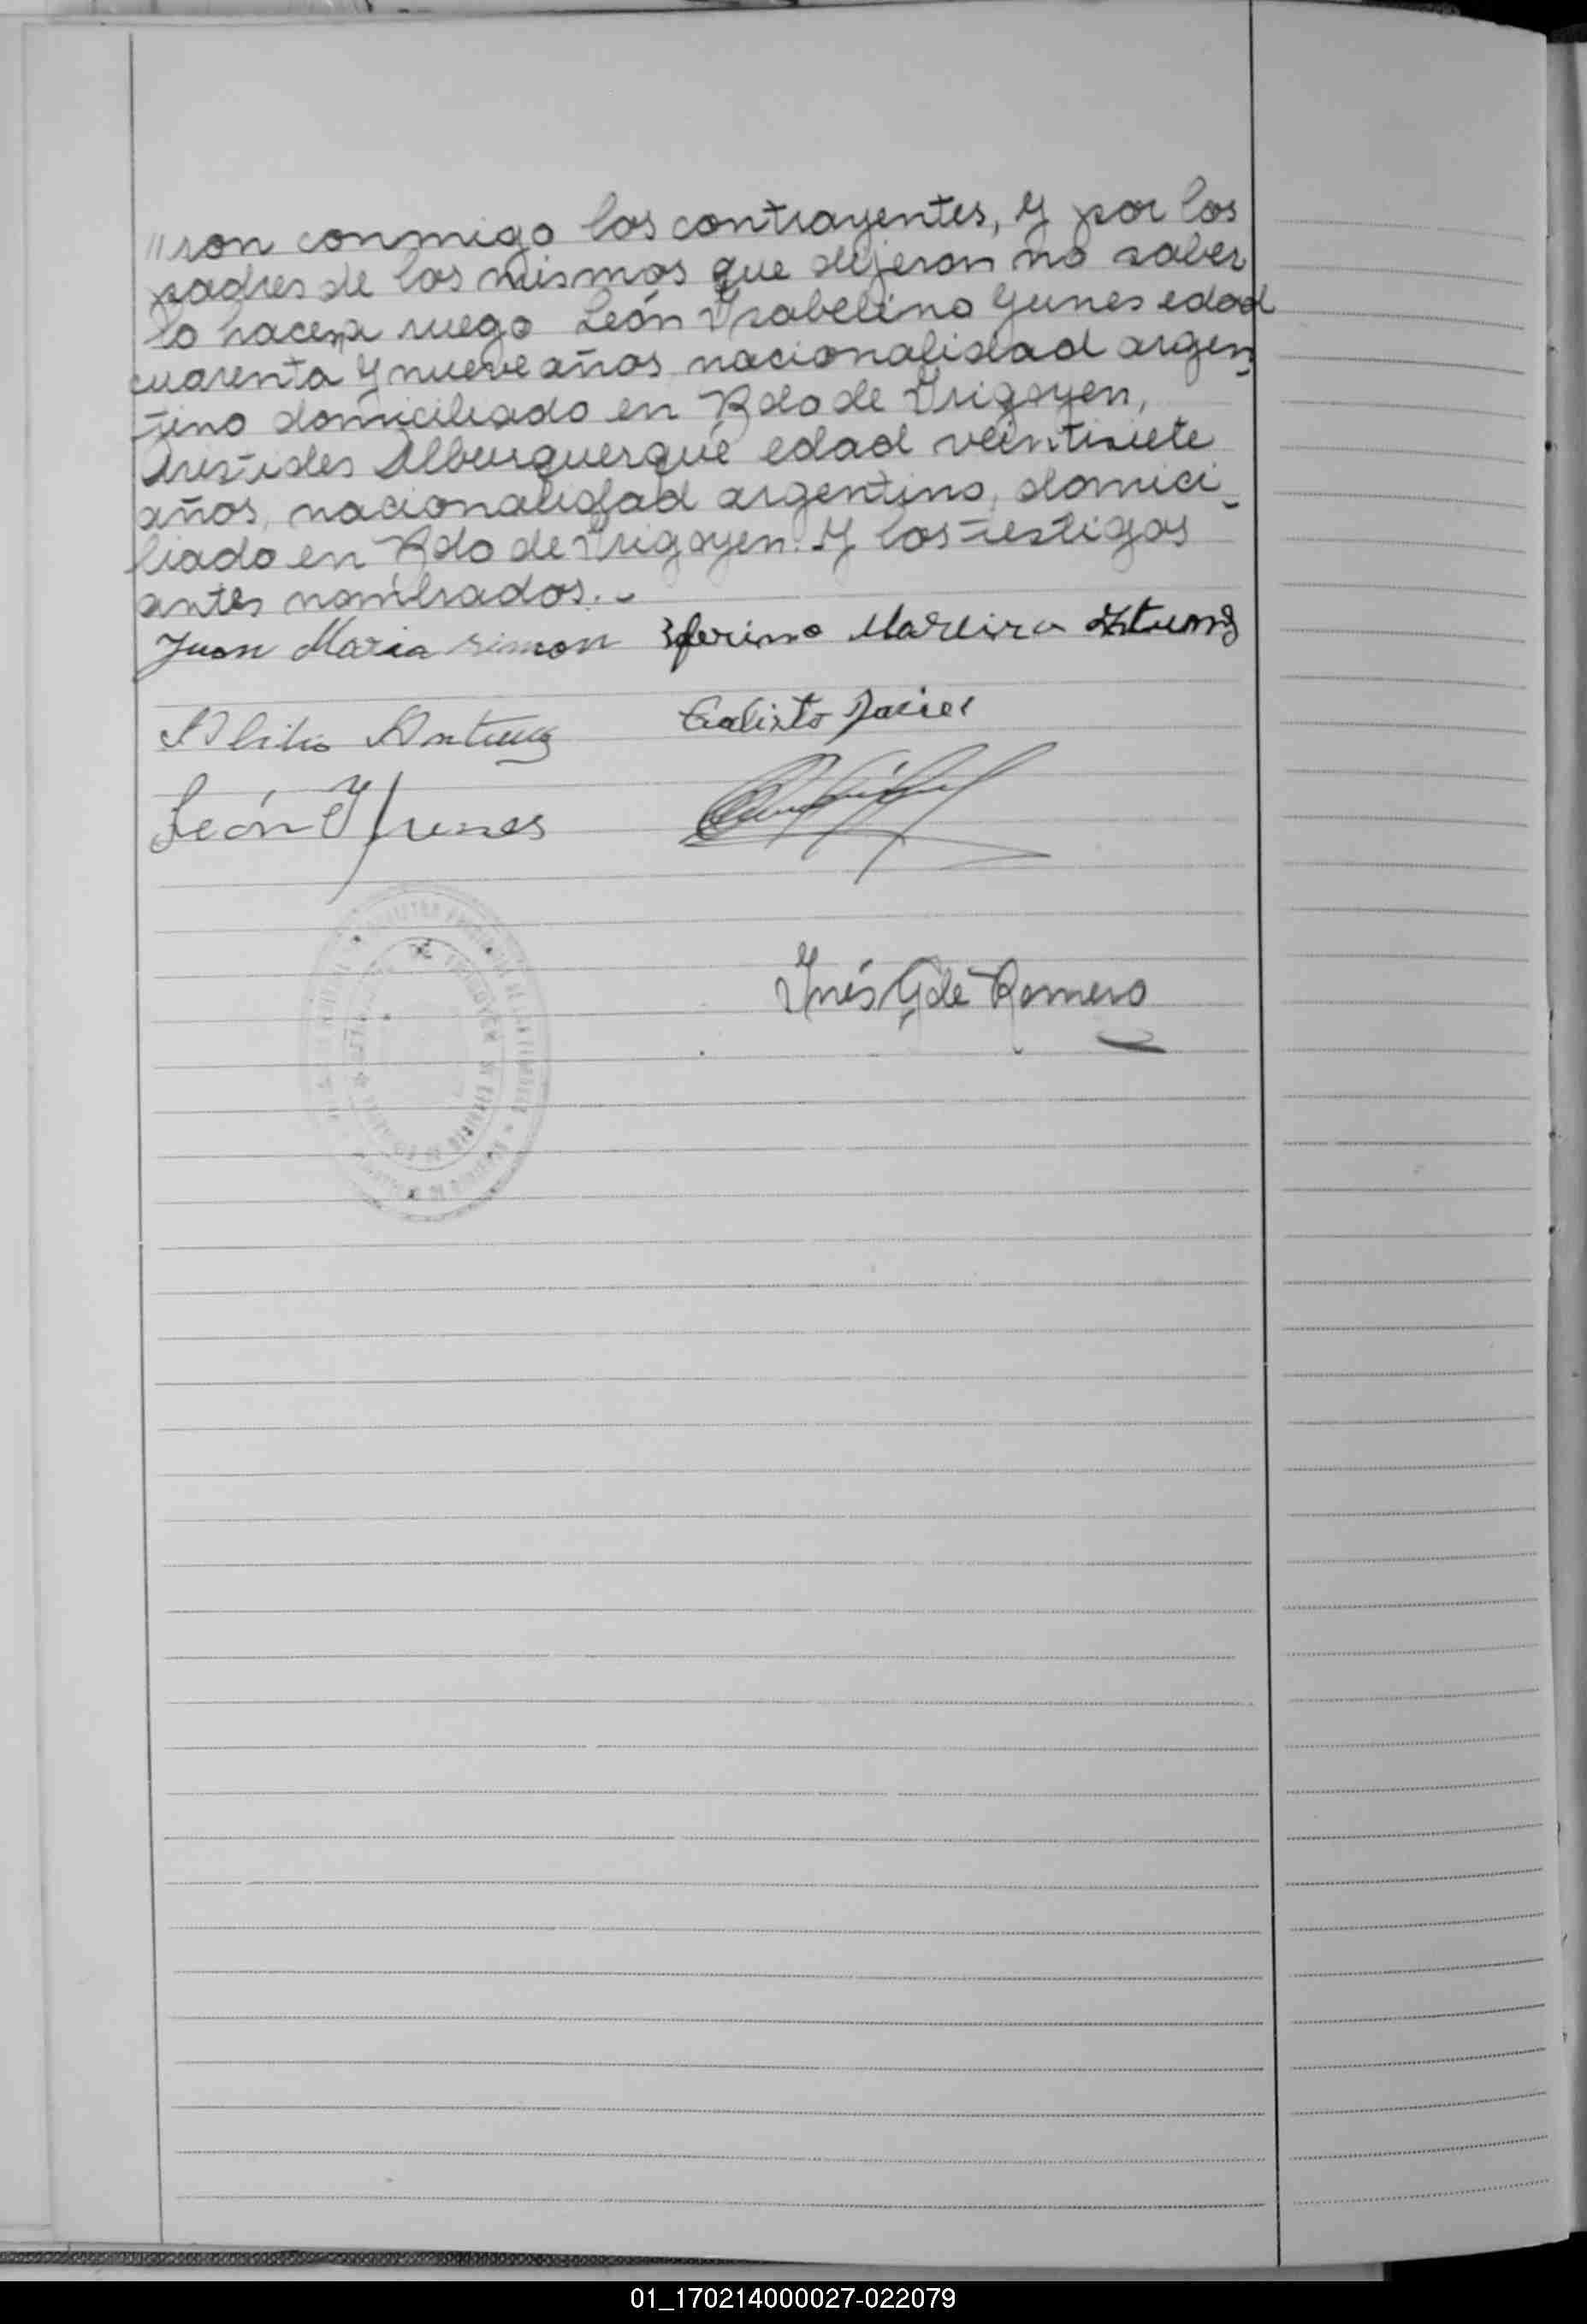 "ron conmigo los contrayentes, y por los
padres de los mismos que dijeron no saber
lo hacen a ruego León Ysabelino Yunes edad
cuarenta y nueve años nacionalidad argen-
tino domiciliado en Bdo de Yrigoyen,
Arístides Alburquerque edad veintisiete
años, nacionalidad argentino, domici-
liado en Bdo de Yrigoyen. Y los testigos
antes nombrados.-
Juan Maria simon
Mareira
Calisto
León Y Yunes
DE
Ynés G de Romero
01_170214000027-022079